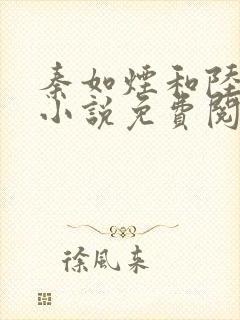 秦如煙和陸
小說免費閱
徐風來